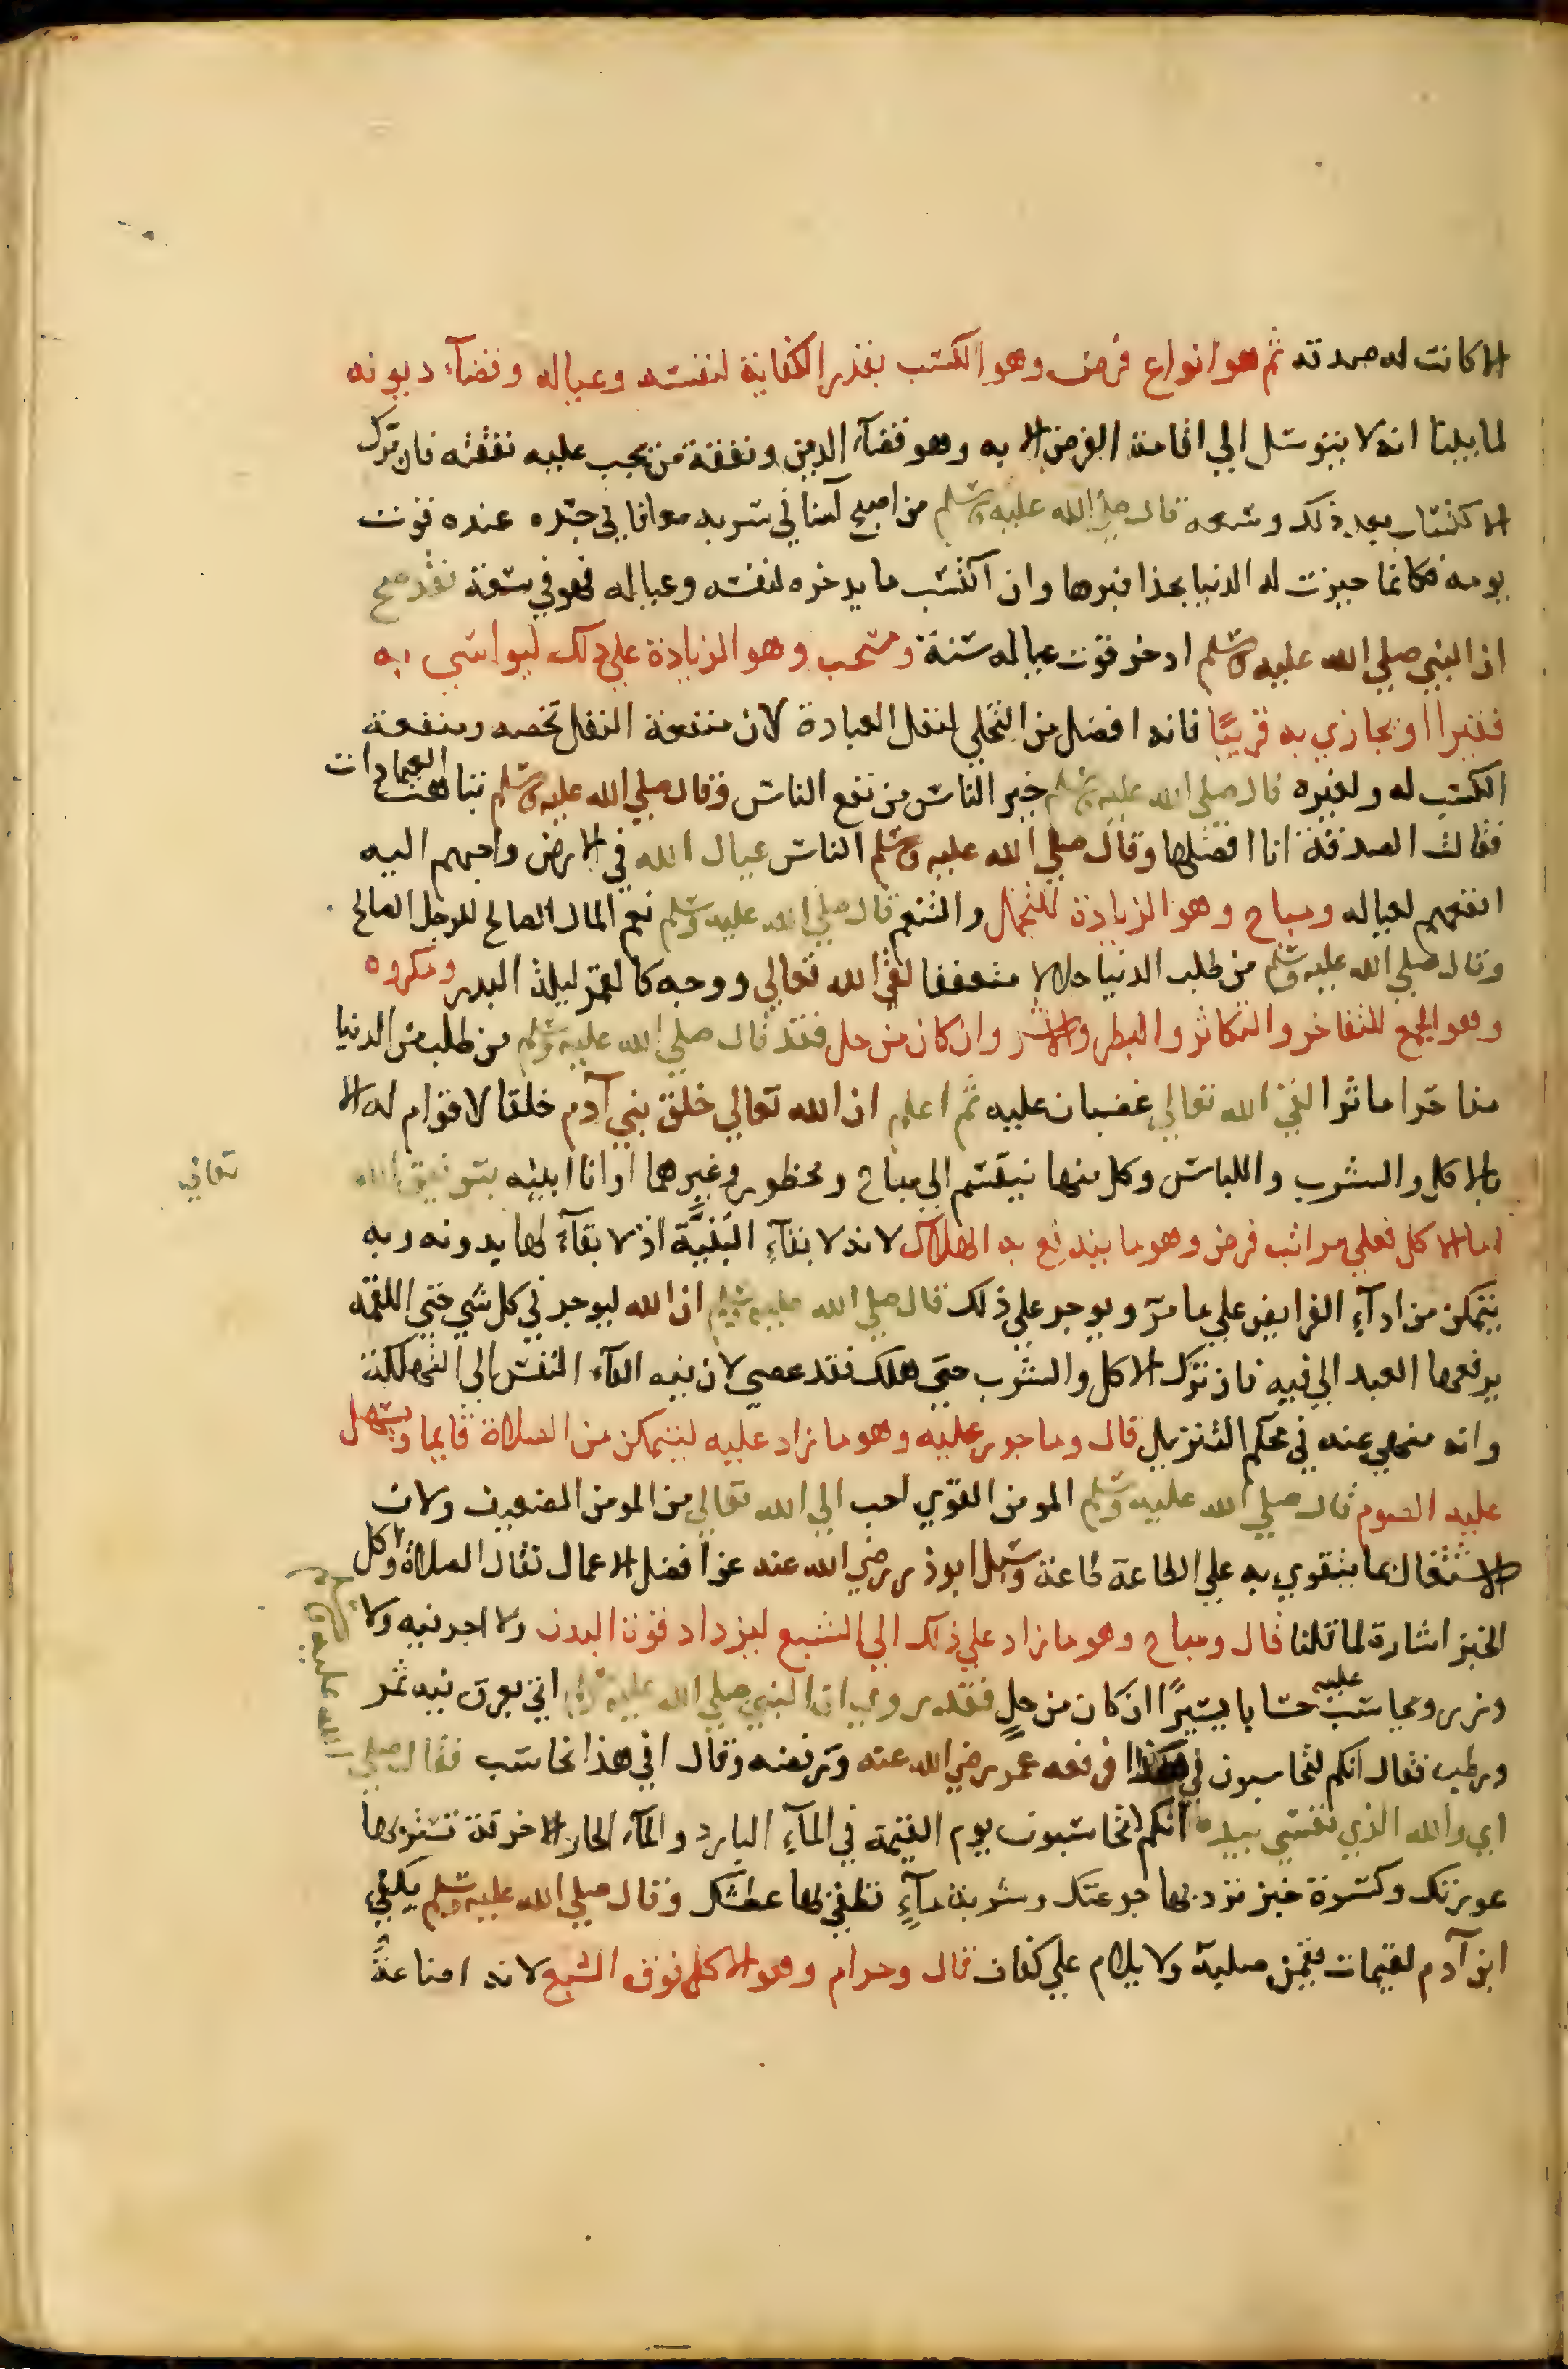 الا كانت له صدقة ثم هو انواع فرض وهو الكسب بقدر الكفاية لنفسه وعياله وقضآء ديونه
لما بينا انه لا يتوسل الي اقامة الفرض الا به وهو قضآء الدين ونفقة من يجب عليه نفقته فان ترك
الاكتساب بعد ذلك وسعه قال صلي الله عليه وسلم من اصبح آمنا في سربه معافا في جسده عنده قوت
يومه فكانما حيزت له الدنيا بحذافيرها وان اكتسب ما يدخره لنفسه وعياله فهو في سعة فقد صح
ان النبي صلي الله عليه وسلم ادخر قوت عياله سنة ومستحب وهو الزيادة علي ذلك ليواسي به
فقيرا او يجازي به قريبًا فانه افضل من التخلي لنفل العبادة لان منفعة النفل تخصه ومنفعة
الكسب له ولغيره قال صلي الله عليه وسلم خير الناس من نفع الناس وقال صلي الله عليه وسلم تباهت العبادات
فقالت الصدقة انا افضلها وقال صلي الله عليه وسلم الناس عيال الله في الارض واحبهم اليه
انفعهم لعياله ومباح وهو الزيادة للتجمل والتنعم قال صلي الله عليه وسلم نعم المال الصالح للرجل الصالح
وقال صلي الله عليه وسلم من طلب الدنيا حلالا متعففا لقي الله تعالي ووجهه كالقمر ليلة البدر ومكروه
وهو الجمع للتفاخر والتكاثر والبطر والاشر وان كان من حل فقد قال صلي الله عليه وسلم من طلب من الدنيا
مفاخرا مكاثرا لقي الله تعالي غضبان عليه ثم اعلم ان الله تعالي خلق بني آدم خلقا لا قوام له الا
بالاكل والشرب واللباس وكل منها ينقسم الي مباح ومحظور وغيرهما وانا ابينه بتوفيق الله
تعالي
اما الاكل فعلي مراتب فرض وهو ما يندفع به الهلاك لانه لابقآءِ البنيّة اذ لا بقآءَ لها بدونه وبه
يتمكن من ادآءِ الفرايض علي ما مرّ ويوجر علي ذلك قال صلي الله عليه وسلم ان الله ليوجر في كل شي حتي اللقمة
يرفعها العبد الي فيه فان ترك الاكل والشرب حتي هلك فقد عصي لان فيه القآء النفس الي التهلكة
وانه منهي عنه في محكم التنزيل قال وماجور عليه وهو ما زاد عليه ليتمكن من الصلاة قايما ويسهل
عليه الصوم قال صلي الله عليه وسلم المومن القوي احب الي الله تعالي من المومن الضعيف ولان
الاشتغال بما يتقوي به علي الطاعة طاعة وسيل ابوذر رضي الله عنه عن افضل الاعمال فقال الصلاة واكل
الخبز اشارة لما قلنا قال ومباح وهو ما زاد علي ذلك الي الشبع ليزداد قوة البدن ولا اجر فيه ولا
وزر ويحاسب عليه حسابا يسيرًا ان كان من حلٍ فقد روي ان النبي صلي الله عليه وسلم اتي بعرق فيه تمر
ورطب فقال انكم لتحاسبون في هذا فرفعه عمر رضي الله عنه ونفضه وقال افي هذا نحاسب فقال صلي
الله عليه وسلم
اي والله الذي نفسي بيده انكم لتحاسبون يوم القيمة في المآءِ البارد والمآء الحار الا خرقة تستر بها
عورتك وكسرة خبز ترد بها جوعتك وشربة مآءٍ تطفي بها عطشك وقال صلي الله عليه وسلم يكفي
ابن آدم لقيمات يقمن صلبه ولا يلام علي كفاف قال وحرام وهو الاكل فوق الشبع لانه اضاعةً